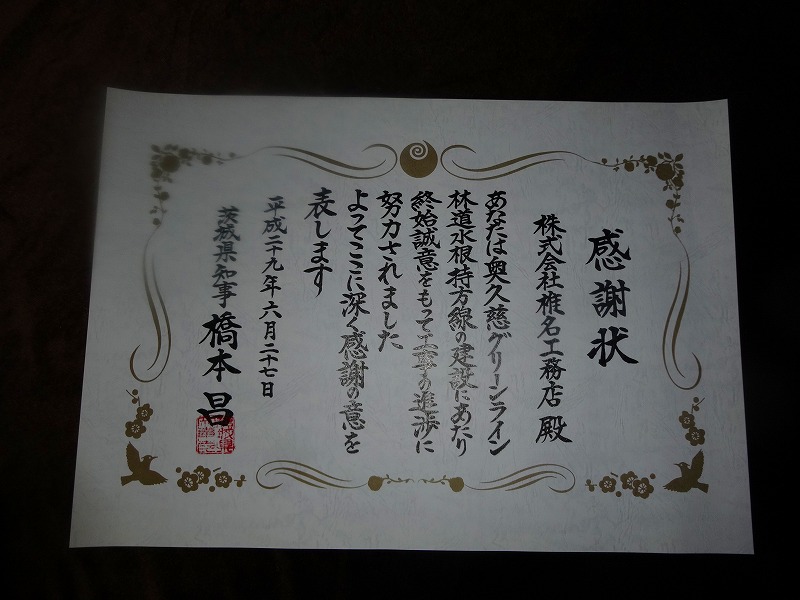 感謝状
株式会社椎名工務店 殿
あなたは奥久慈グリーンライン
林道水根持方線の建設にあたり
終始誠意をもって工事の進渉に
努力されました
よってここに深く感謝の意を
表します
平成二十九年六月二十七日
茨城県知事 橋本 昌